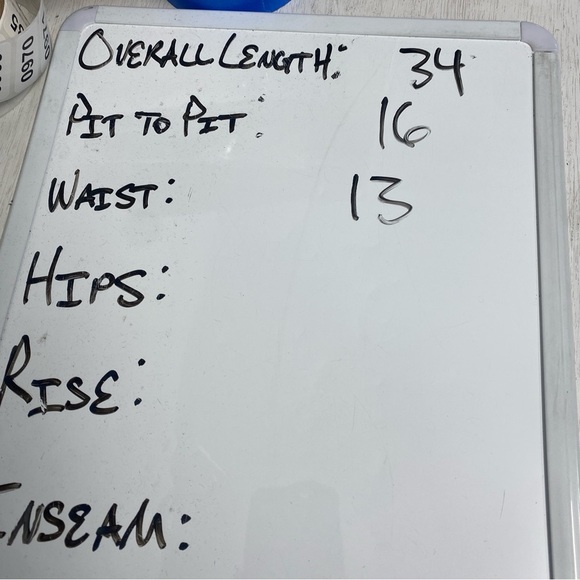 OVERALL LENGTH: 34
PIT TO PIT: 16
WAIST: 13
HIPS:
RISE:
INSEAM: